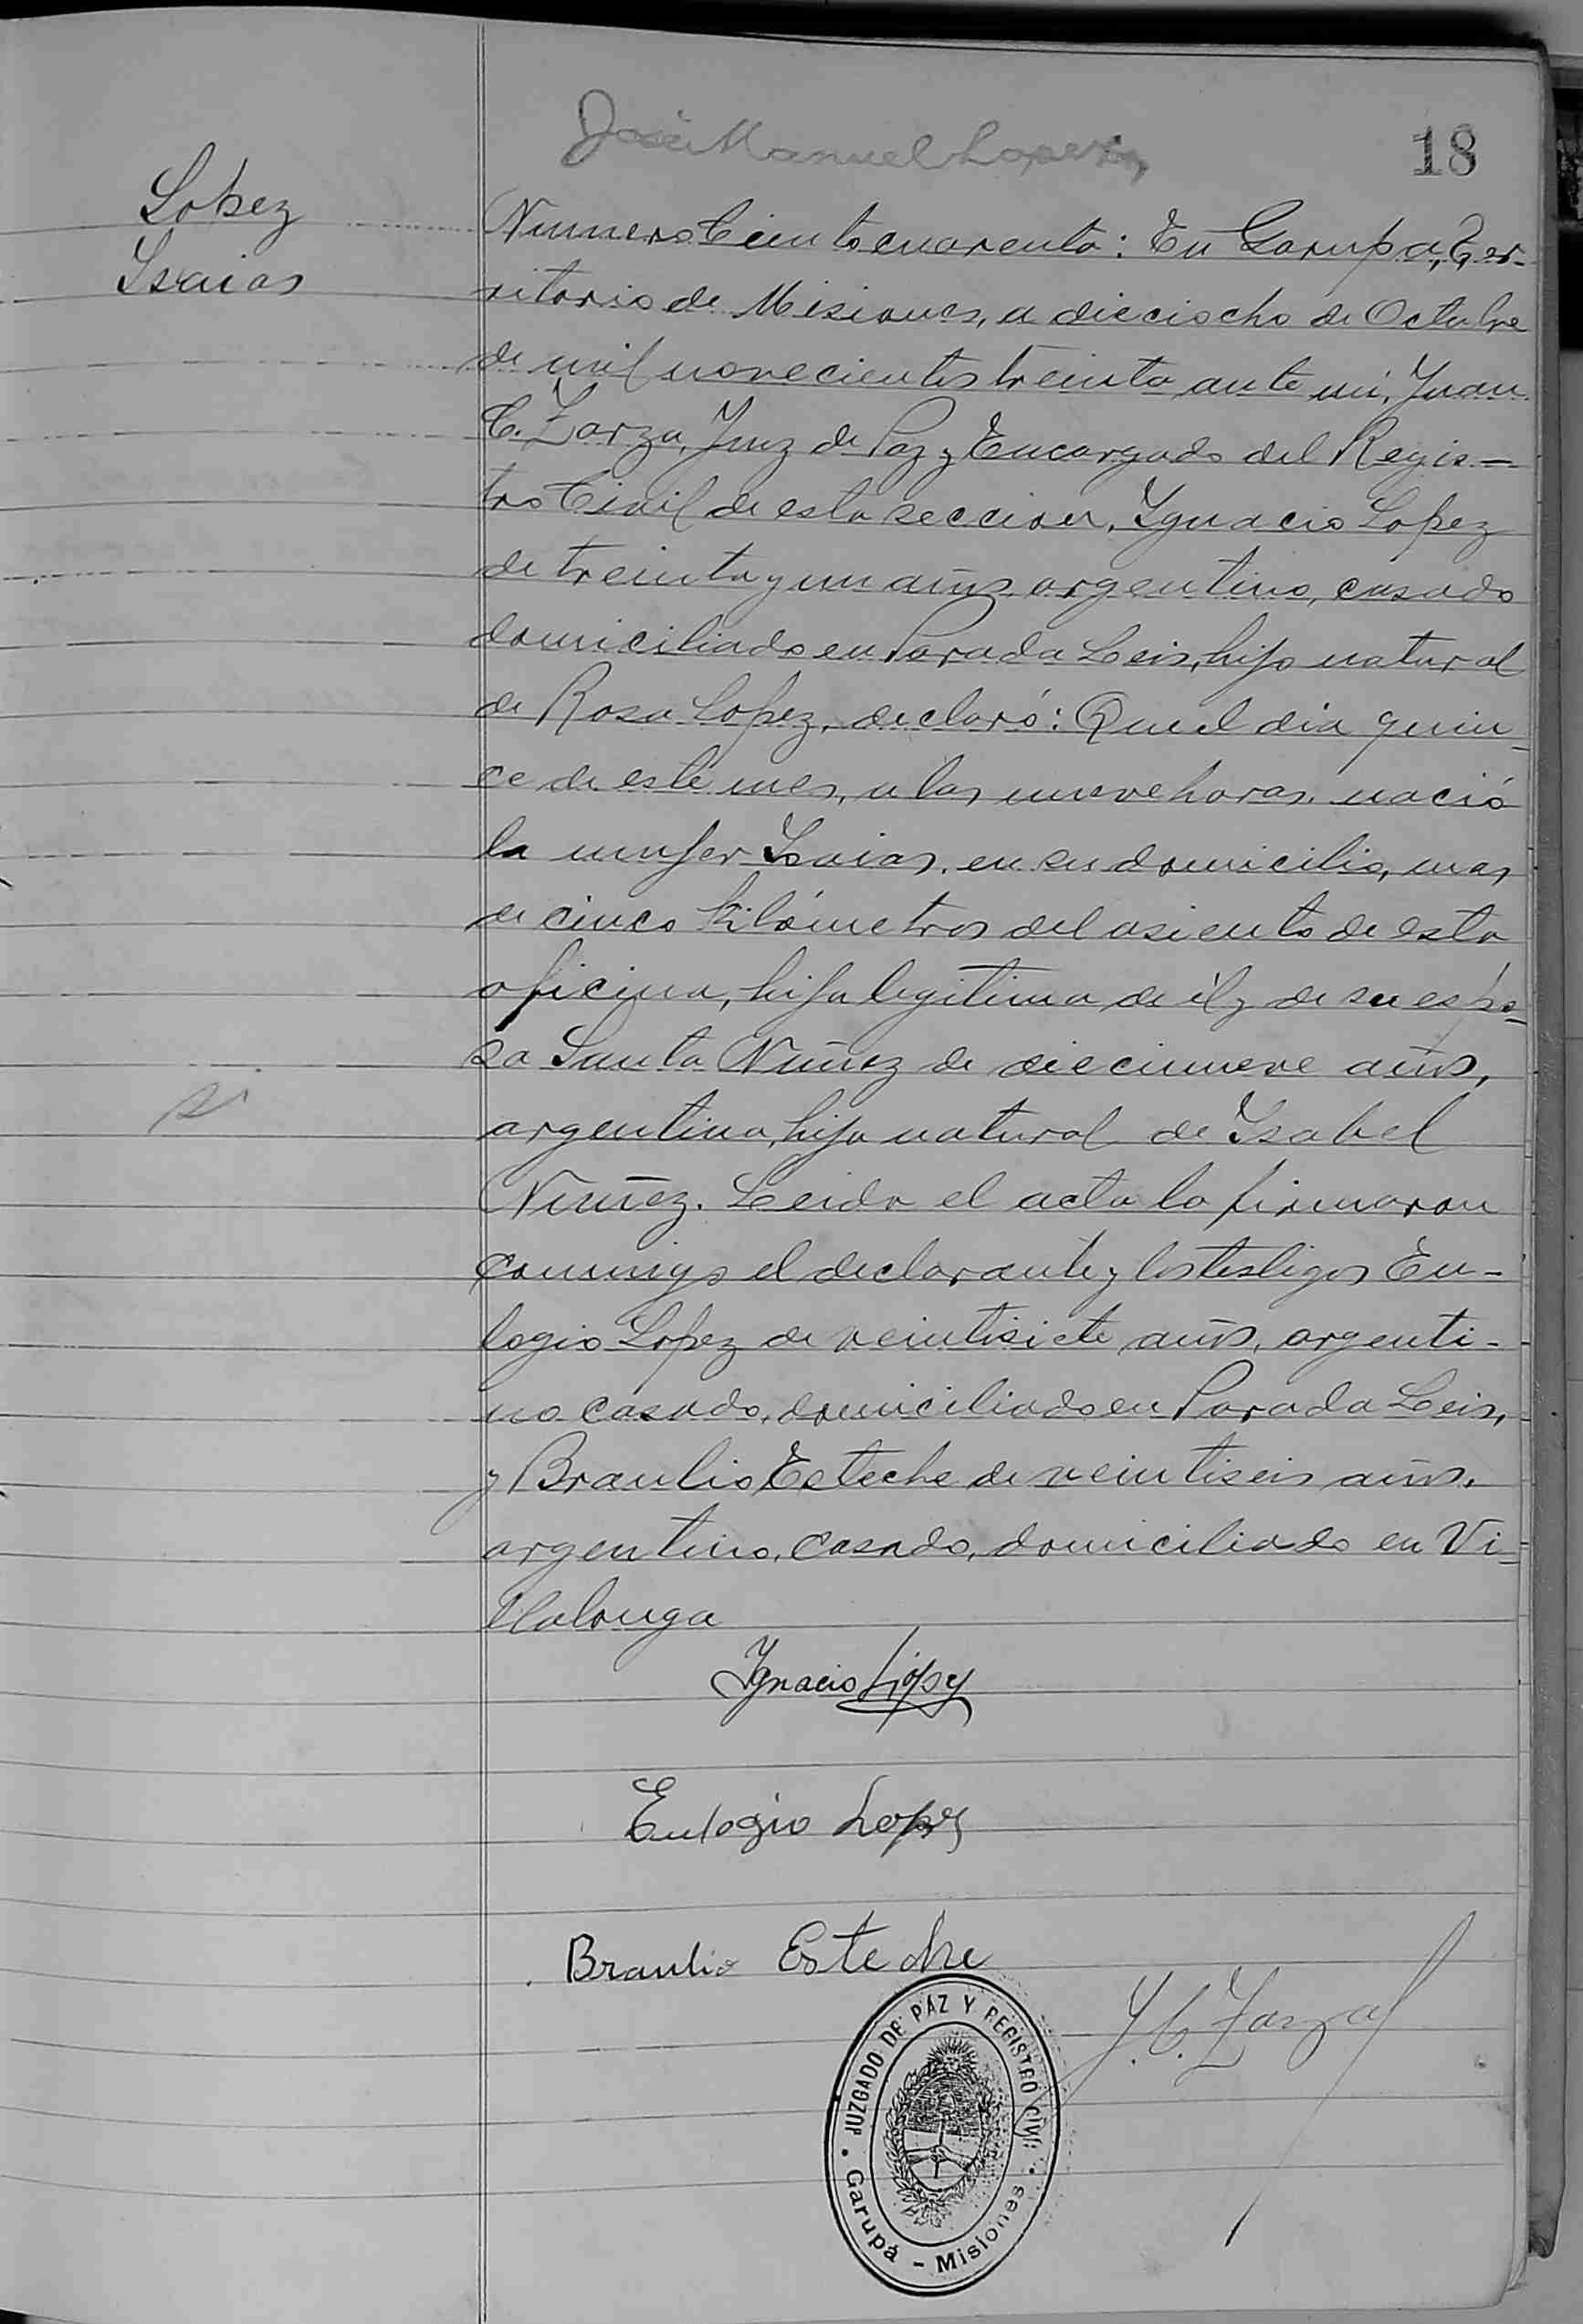 José Manuel Lopez
18
Lopez
Isaias
Numero Ciento cuarenta: En Garupá, Ter-
ritorio de Misiones, a dieciocho de Octubre
de mil novecientos treinta ante mi, Juan
C. Zarza, Juez de Paz y Encargado del Regis-
tro Civil de esta seccion, Ygnacio Lopez
de treinta y un años argentino, casado
domiciliado en Parada Leis, hijo natural
de Rosa Lopez, declaró: Que el dia quin-
ce de este mes, a las nueve horas, nació
la mujer Isaias, en su domicilio, mas
de cinco kilómetros del asiento de esta
oficina, hija legitima de él y de su espo-
sa Santa Nuñez de diecinueve años,
argentina, hija natural de Ysabel
Nuñez. Leida el acta la firmaron
conmigo el declarante y los testigos Eu-
logio Lopez de veintisiete años, argenti-
no casado, domiciliado en Parada Leis,
y Braulio Esteche de veintiseis años,
argentino, casado, domiciliado en Vi-
llalonga
Ygnacio López
Eulogio Lopez
Braulio Esteche
J. C. Zarza
JUZGADO DE PAZ Y REGISTRO CIVIL
Garupá - Misiones